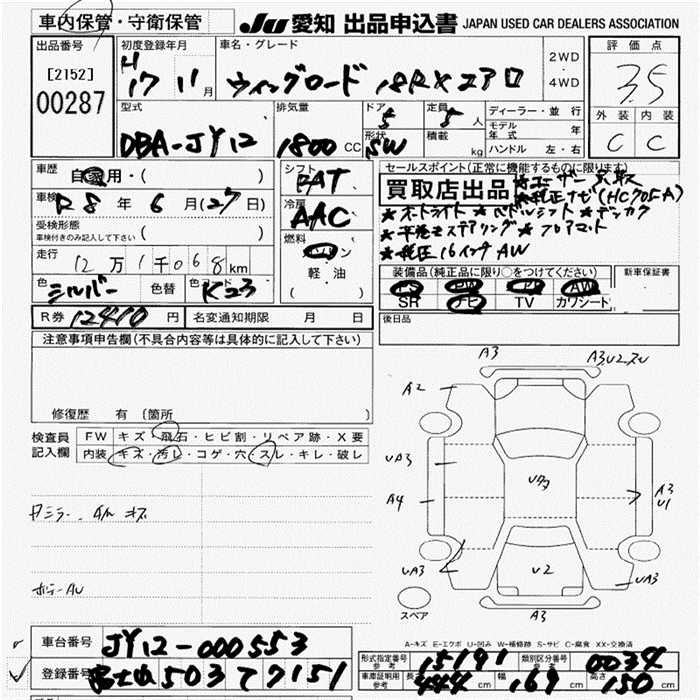 車内保管・守衛保管 JU 愛知 出品申込書 JAPAN USED CAR DEALERS ASSOCIATION
出品番号 初度登録年月 車名・グレード 2WD・4WD 評価点
[2152] H 17 11月 ウィングロード 18RX エアロ 3.5
00287 型式 排気量 ドア 定員 ディーラー・並行 外装 内装
DBA-JY12 1800CC 5 5人 モデル年式 年 C C
形状 SW 積載 kg ハンドル 左・右
車歴 自家用・( ) シフト FAT セールスポイント(正常に機能するものに限ります)
車検 R8年 6月(27日) 冷房 AAC 買取店出品 ★ユーザー買取
★純正ナビ(HC705-A)
受検形態 ( ) ★オートライト
車検付きのみ記入して下さい 燃料 ガソリン ★フロアマット
走行 12万1千068km 軽・油 ★純正16インチAW
( ) 装備品(純品に限り○をつけてください) 新車保証書
色 シルバー 色替 色コード K23 PS PW AW
SR ナビ TV カワシート
R券 12410円 名変通知期限 月 日 後日品
注意事項申告欄(不具合内容等は具体的に記入して下さい)
修復歴 有 〔箇所 〕
検査員 FW キズ・飛石・ヒビ割・リペア跡・X要
記入欄 内装 キズ・汚レ・コゲ・穴・スレ・キレ・破レ
A3
A3U2
A2
UA3
A4
A3
U1
UA3
U2
UA3
A3
スペア
A-キズ E-エクボ U-凹み W-補修跡 S-サビ C-腐食 XX-交換済
車台番号 JY12-000553 形式指定番号 参考 15191 類別区分番号 参考 0034
登録番号 富士山 503 て 7151 車庫証明用 参考 長さ 444cm 幅 169cm 高さ 150cm